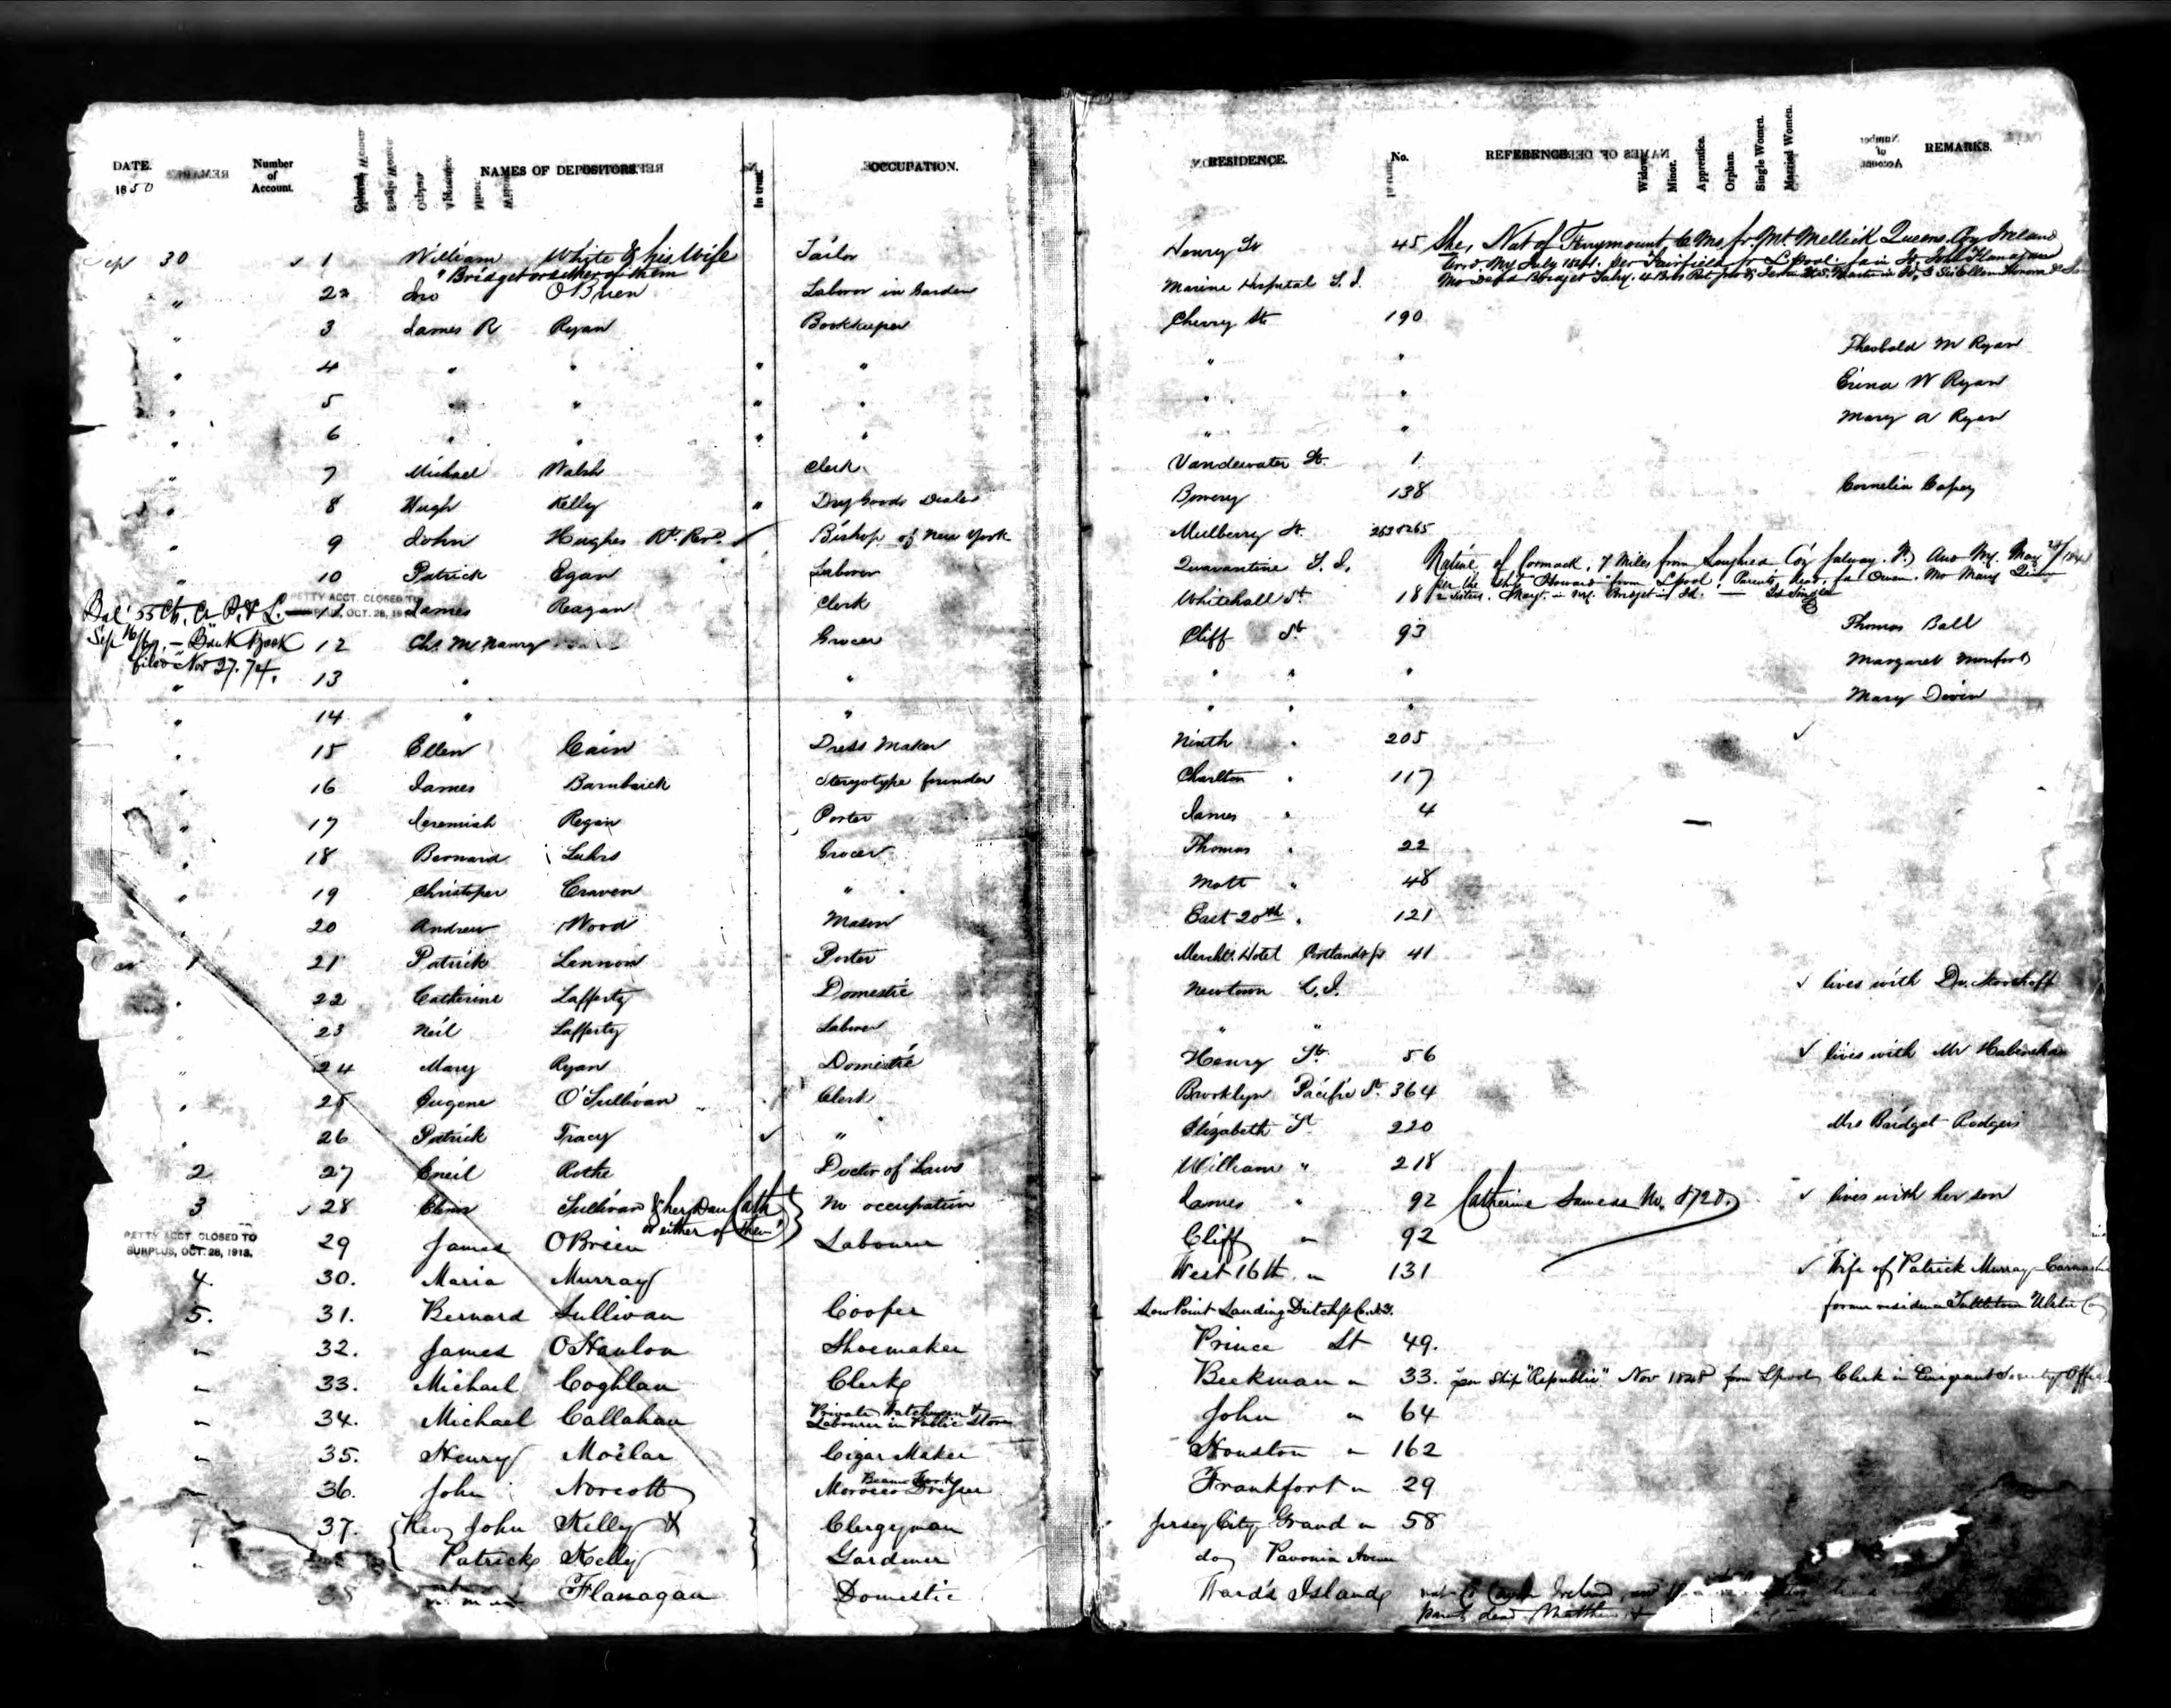 DATE. Number of Account. NAMES OF DEPOSITORS. In trust. OCCUPATION. RESIDENCE. No. REFERENCE. Widow. Minor. Apprentice. Orphan. Single Women. Married Women. REMARKS.
1850
Sep 30 ✓ 1 William White & his Wife Tailor Henry St 45 She, Nat of Ferrymount, 6 Ms fr. Mt. Mellick Queens Coy Ireland
" Bridget or either of them Arrd. NY July 1844. per Fairfield fr Lpool. fa in St. John Flanagan
" 2 Jno OBrien Laborer in Garden Marine Hospital S. I. Mo Dead Bridget
" 3 James R Ryan Bookkeeper Cherry St 190
" 4 " " " " " " Theobald M Ryan
" 5 " " " " " " Erina W Ryan
" 6 " " " " " " Mary A Ryan
" 7 Michael Walsh Clerk Vandewater St. 1
" 8 Hugh Kelly " Dry Goods Dealer Bowery 138 Cornelia
" 9 John Hughes Rt. Revd. ✓ Bishop of New York Mulberry St. 263 & 265
" 10 Patrick Egan Laborer Quarantine S. I. Native of Cormack, 7 Miles from Loughrea Coy Galway. Arrd NY. May
per the Ship "Howard" from Lpool. Parents dead, fa Owen. Mo Mary
PETTY ACCT. CLOSED TO SURPLUS, OCT. 28, 1913
Bal 55 Ct. Cr. P. & L. 11 James Reagan Clerk Whitehall St 18 2 sisters. Mary in NY. Bridget in Id. Is Single
Sep 16/69, – Bank Book 12 Chs. McNamy Grocer Cliff St 93 Thomas Ball
filed Nov 27. 74.
" 13 " " " " " Margaret Monfort
" 14 " " " " " Mary Devin
" 15 Ellen Cain Dress Maker Ninth " 205 ✓
" 16 James Barnbrick Stereotype founder Charlton " 117
" 17 Jeremiah Regan Porter James " 4
" 18 Bernard Luhrs Grocer Thomas " 22
" 19 Christoper Craven " Mott " 48
" 20 Andrew Wood Mason East 20th " 121
Oct 1 21 Patrick Lennon Porter Mercht. Hotel Cortlandt St 41
" 22 Catherine Lafferty Domestic Newtown L. I. ✓ lives with Dr.
" 23 Neil Lafferty Laborer " "
" 24 Mary Ryan Domestic Henry St. 56 ✓ lives with Mr
" 25 Eugene O'Sullivan Clerk Brooklyn Pacific St. 364
" 26 Patrick Tracy ✓ " Elizabeth St 220 Mrs Bridget Rodgers
2 27 Oneil Rothe Doctor of Laws William " 218
3 ✓ 28 Ellen Sullivan & her Dau Cath No occupation James " 92 Catherine No. 8728. ✓ lives with her son
or either of them
PETTY ACCT. CLOSED TO SURPLUS, OCT. 28, 1913.
29 James OBrien Labourer Cliff " 92
4. 30. Maria Murray West 16th " 131 ✓ Wife of Patrick Murray
5. 31. Bernard Sullivan Cooper Low Point Landing Dutchess former residence Ulster Co
" 32. James OHanlon Shoemaker Prince St 49.
" 33. Michael Coghlan Clerk Beekman " 33. per Ship "Republic" Nov 1848 from Lpool, Clerk in Emigrant Society Office
" 34. Michael Callahan Private Watchman & Labourer in Public Store John " 64
" 35. Henry Moelar Cigar Maker Houston " 162
" 36. John Norcott Morocco Dresser Frankfort " 29
7 37. Rev John Kelly & Clergyman Jersey City Grand " 58
" Patrick Kelly Gardener do Pavonia Avenue
38 Flanagan Domestic Ward's Island